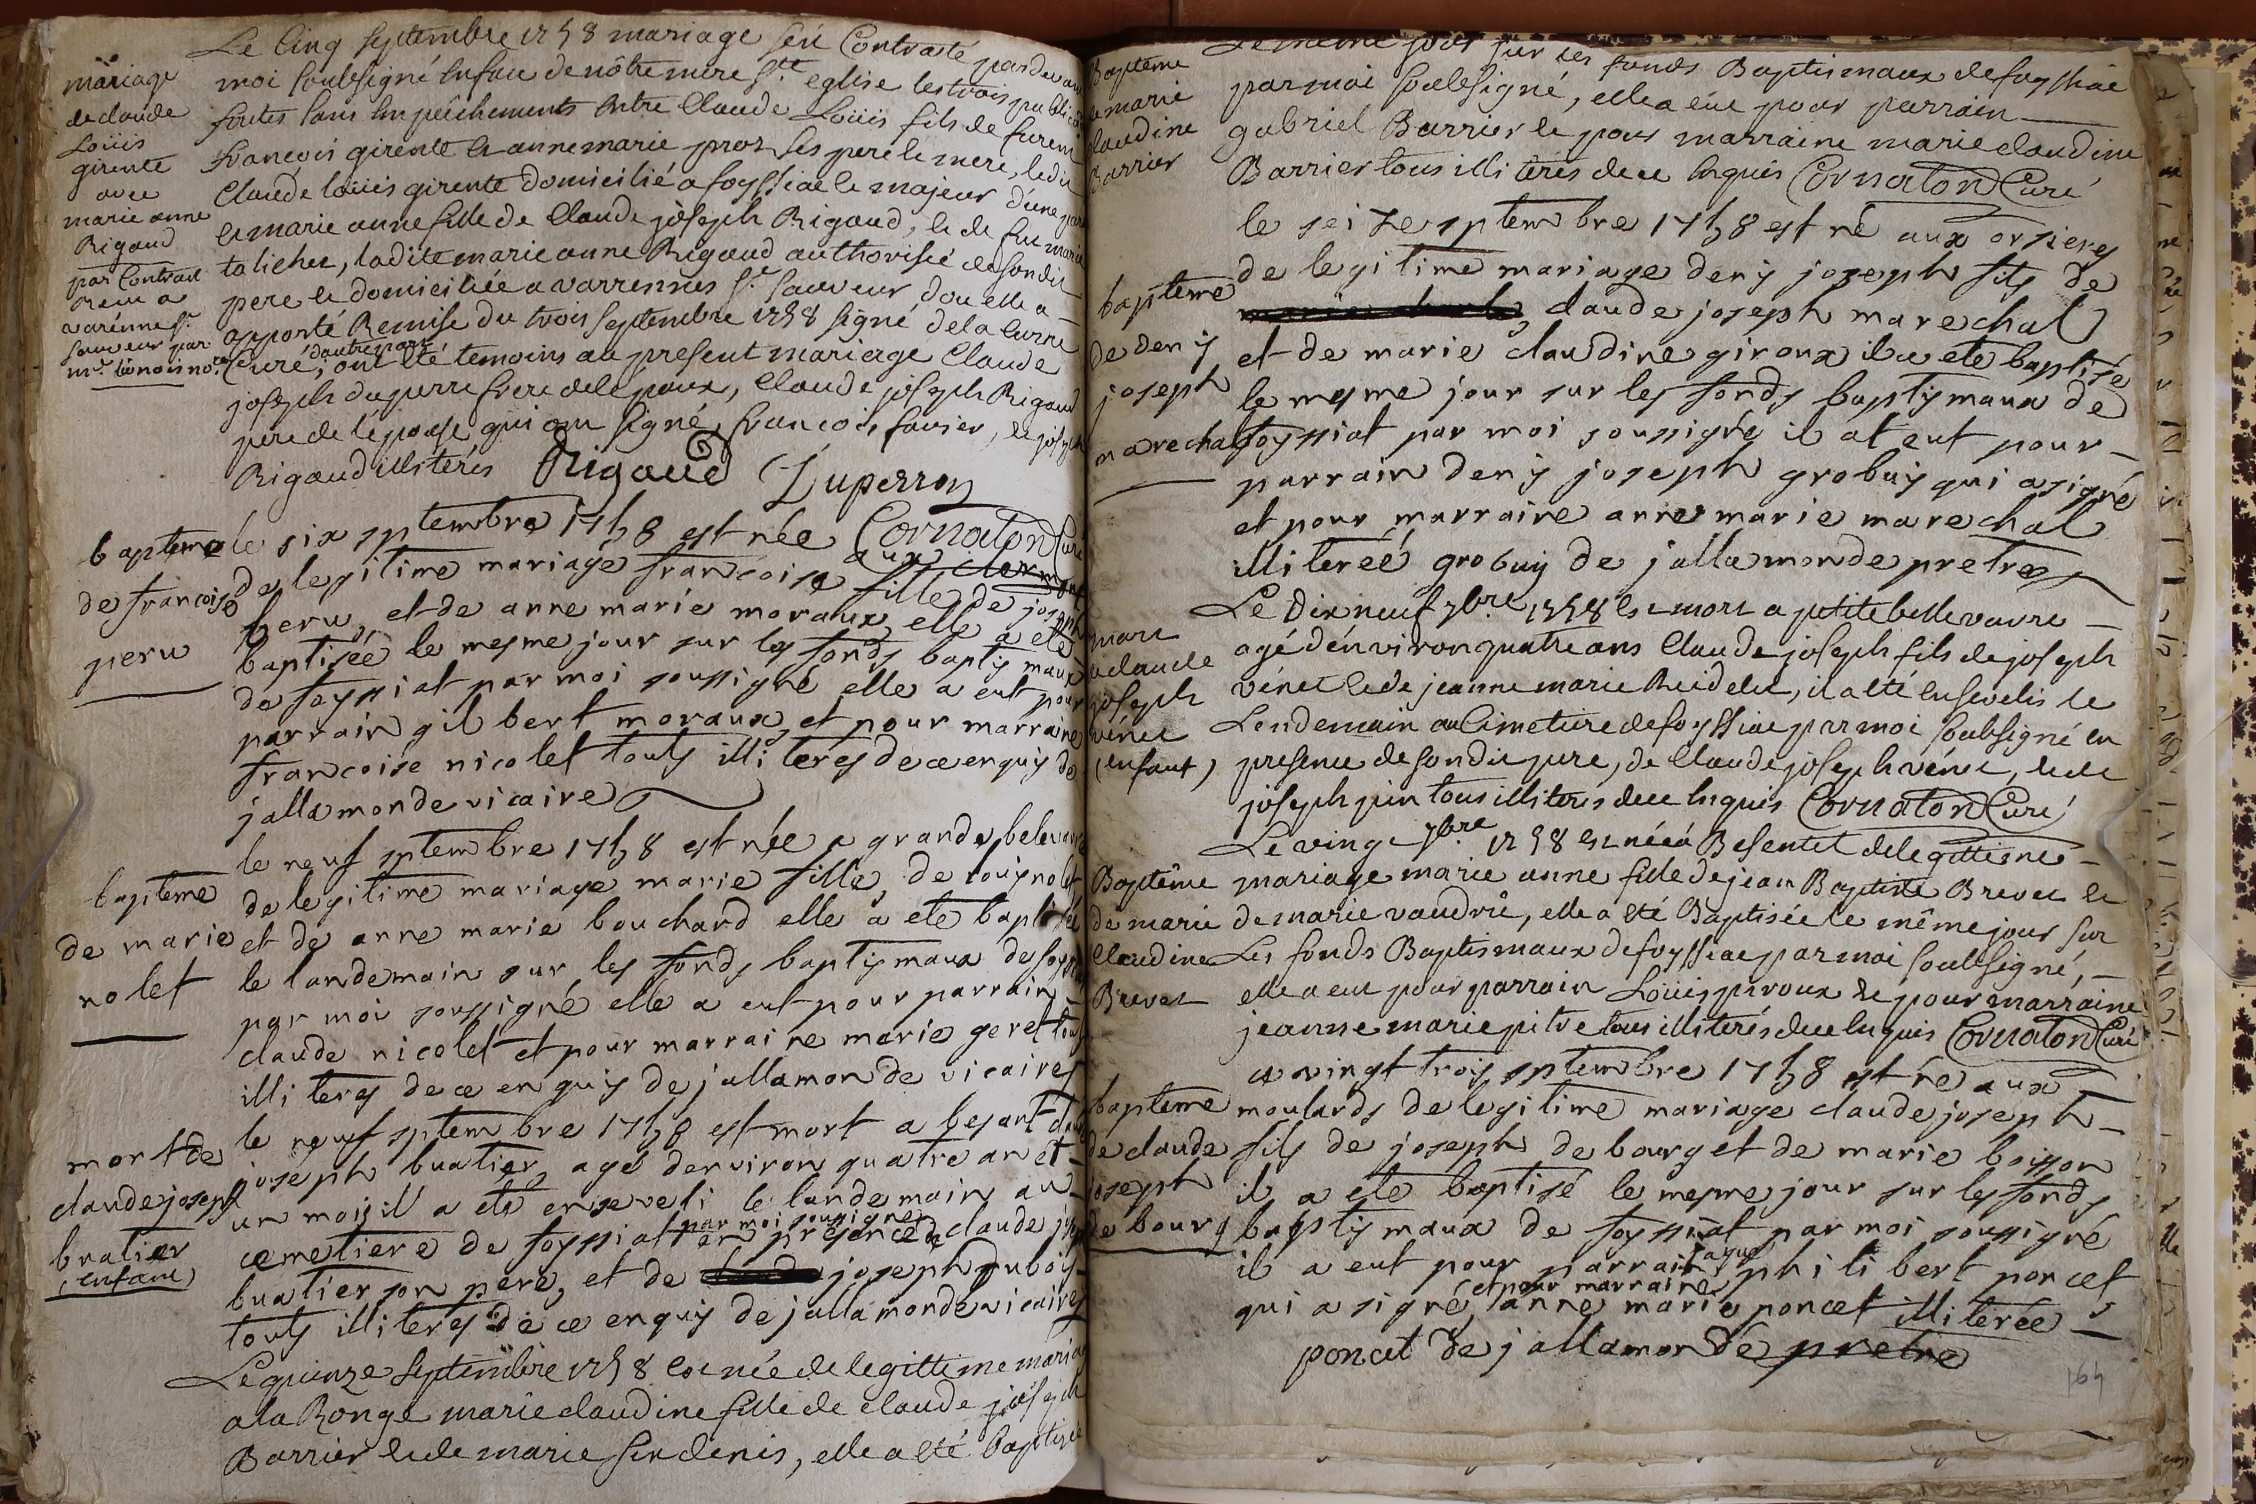 Le Cinq septembre 1758 mariage
moi soubsigné En face de nôtre mere Ste eglise les trois
faites sans Empêchements Entre Claude Loüis fils de
francois girente et anne marie proz ses pere et mere, ledit
Claude loüis girente domicilié a foyssiac et majeur d'une part
et marie anne fille de Claude joseph Rigaud, et de
talicher, ladite marie anne Rigaud authorisée de son dit
pere et domiciliée a varrennes St. sauveur dou elle a
apporté Remise du trois septembre 1758 signé
Curé, d'autre part ont été temoins au present mariage Claude
joseph duperre frere de l'epoux, Claude joseph Rigaud
pere de l'épouse qui ont signé, francois favier, et joseph
Rigaud illiterés Rigaud Duperron
Cornaton Curé
mariage
de claude
Loüis
girente
avec
marie anne
Rigaud
par Contract
Recu a
varénne St.
sauveur par
le six septembre 1758 est née
de legitime mariage francoise fille de joseph
peru, et de anne marie moraux, elle a eté
baptisée le mesme jour sur les fonds baptismaux
de foyssiat par moi soussigné elle a eut pour
parrain gilbert moraux, et pour marraine
francoise nicolet touts illiteres de ce enquis de
jallamonde vicaire
bapteme
de francoise
peru
le neuf septembre 1758 est née a grande
de legitime mariage marie fille, de nolet
et de anne marie bouchard elle a eté baptisée
le landemain sur les fonds baptismaux de
par moi soussigné elle a eut pour parrain
claude nicolet et pour marraine marie geret touts
illiteres de ce enquis de jallamonde vicaires
bapteme
de marie
nolet
le neuf septembre 1758 est mort a
joseph buatier, agé denviron quatre an et
un mois il a eté enseveli le landemain au
cemetiere de foyssiat par moi soussigné en presence de claude joseph
buatier son pere, et de joseph dubois
touts illiteres de ce enquis de jallamonde vicaires
mort de
claude joseph
buatier
(enfant)
Le quinze septembre 1758 Est née de legittime mariage
a la Ronge marie claudine fille de claude joseph
Barrier et de marie denis, elle a eté Baptisée
Le même jour sur les fonds Baptismaux de foyssiac
par moi soubsigné, elle a eüe pour parrain
gabriel Barrier et pour marraine marie claudine
Barrier tous illiterés de ce Enquis Cornaton Curé
Bapteme
de marie
claudine
Barrier
le seize septembre 1758 est né aux orsieres
de legitime mariage denis joseph fils de
claude joseph marechal
et de marie claudine giroux il a eté baptisé
le mesme jour sur les fonds baptismaux de
foyssiat par moi soussigné, il at eut pour
parrain denis joseph grobuis qui a signé
et pour marraine anne marie marechal
illiterée grobuy de jallamonde pretre
bapteme
de denis
joseph
marechal
Le Dix neuf 7bre. 1758 Est mort a petite bellevavre
agé d'environ quatre ans Claude joseph fils de joseph
vénet et de jeanne marie Reidelet, il a été Ensevelis le
Lendemain au Cimetiere de foyssiac par moi soubsigné en
presence de son dit pere, de Claude joseph vénet, et de
joseph pin tous illiterés de ce Enquis Cornaton Curé
mort
de claude
joseph
vénet
(enfant)
Le vingt 7bre. 1758 Est née a Besentet de legittisme
mariage marie anne fille de jean Baptiste Brevet et
de marie vaudrü, elle a été Baptisée le même jour sur
Les fonds Baptismaux de foyssiac par moi soubsigné,
elle a eue pour parrain Loüis piroux et pour marraine
jeanne marie pitre tous illiterés de ce Enquis Cornaton Curé
Baptême
de marie
Claudine
Brevet
ce vingt trois septembre 1758 est né aux
moulards de legitime mariage claude joseph
fils de joseph de bourg et de marie boisson
il a eté baptisé le mesme jour sur les fonds
baptismaux de foyssiat par moi soussigné
il a eut pour parrain philibert poncet
qui a signé, et pour marraine anne marie poncet illiterée
poncet de jallamonde pretre
bapteme
de claude
joseph
de bourg
164